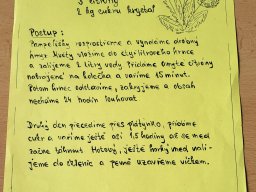 3 citróny
2 kg cukru krystal
Postup :
Pampelišky rozprostřeme a vyndáme drobný
hmyz. Květy vložíme do čtyřlitrového hrnce
a zalijeme 2 litry vody. Přidáme omyté citrony
nakrájené na kolečka a vaříme 15 minut.
Potom hrnec odstavíme, zakryjeme a obsah
necháme 24 hodin louhovat.
Druhý den přecedíme přes plátýnko, přidáme
cukr a vaříme ještě asi 1,5 hodiny až se med
začne táhnout. Hotový, ještě horký med nali-
jeme do sklenic a pevně uzavřeme víčkem.